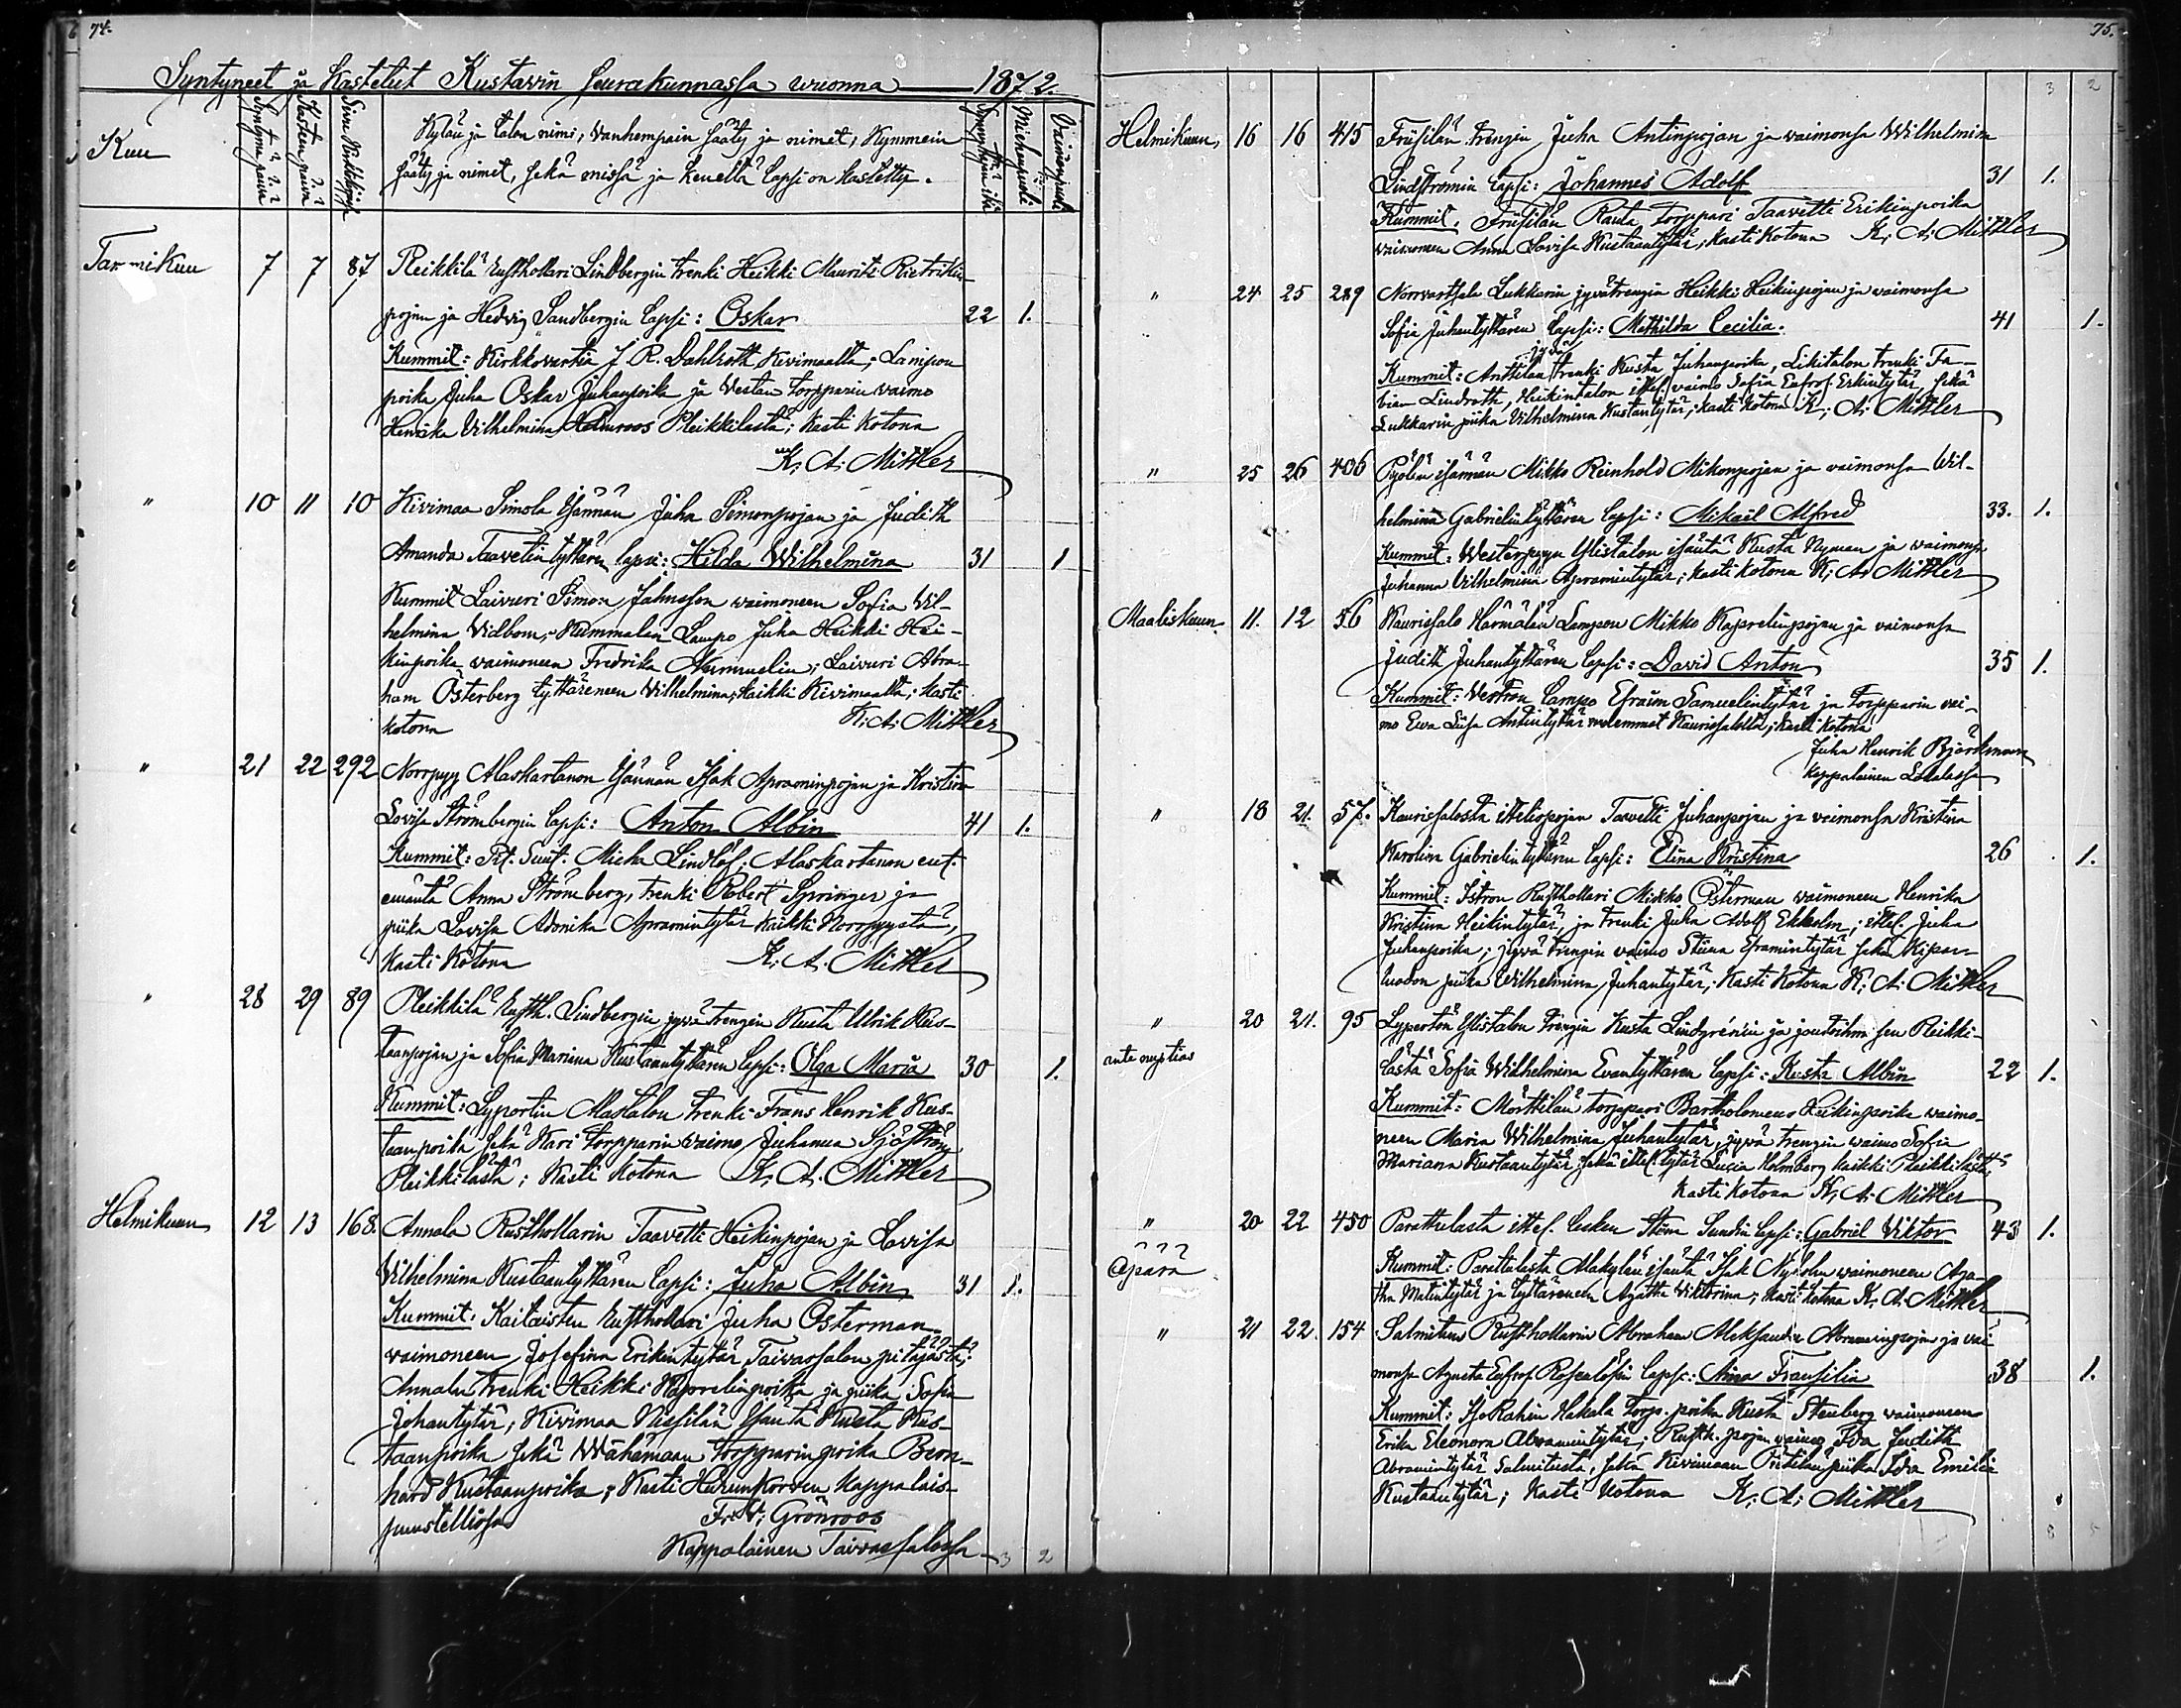 74.
Syntyneet ja Kastetut Kustavin seurakunnassa vuonna 1872.
Kuu
Syntymä päivä
Kasteen päivä
Sivu Kirkkokirjassa
Kylän ja talon nimi, Vanhempain sääty ja nimet, Kymmein
sääty ja nimet, sekä missä ja keneltä lapsi on kastettu.
Synnyttäjän ikä
Miehenpuoli
Vaimonpuoli
Tammikuu 7 7 87 Pleikkilä Rusthollari Lindbergin trenki Heikki Mauritz Rietrikin
pojan ja Hedvig Sandbergin lapsi: Oskar 22 1.
Kummit: Kirkkovartia J. R. Dahlroth, Kivimaalta; Lampon
poika Juha Oskar Juhanpoika ja Vestan torpparin vaimo
Henrika Vilhelmina Holmroos Pleikkilästä; Kasti Kotona
K. A. Mittler
" 10 11 10 Kivimaa Simola Isännän Juha Simonpojan ja Judith
Amanda Taavetin tyttären lapsi: Hilda Wilhelmina 31 1
Kummit Laivuri Simon Johnsson waimoneen Sofia Vil-
helmina Vidbom, Nummelin Lampo Juha Heikki Hei-
kinpoika waimoneen Fredrika Nummelin; Laivuri Abra-
ham Österberg tyttäreneen Vilhelmina; Kaikki Kivimaalta; Kasti
kotona K: A: Mittler
" 21 22 292 Norrpyy Alaskartanon Isännän Isak Apraminpojan ja Kristina
Lovisa Strömbergin lapsi: Anton Albin 41 1.
Kummit: Pit. Suut. Micha Lindlöf; Alaskartanon ent.
emäntä Anna Strömberg, trenki Robert Springer ja
piika Lovisa Adonika Apramintytär kaikki Norrpyystä,
Kasti Kotona K. A. Mittler
" 28 29 89 Pleikkilä Rusth. Lindbergin jyvätrengin Kusta Ulrik Kus-
taanpojan ja Sofia Mariana Kustaantyttären lapsi: Olga Maria 30 1.
Kummit: Lyportin Alastalon trenki Frans Henrik Kus-
taanpoika sekä Kari torpparin vaimo Juhanna Sjöström
Pleikkilästä; Kasti kotona K. A. Mittler
Helmikuun 12 13 168. Annala Rusthollarin Taavetti Heikinpojan ja Lovisa
Vilhelmina Kustaantyttären lapsi: Juho Albin 31 1.
Kummit: Kaitaisten Rusthollari Juha Österman
waimoneen Josefina Erikintytär Taivassalon pitäjästä;
Annalan trenki Heikki Kaprelinpoika ja piika Sofia
Johantytär; Kivimaa Nissilän Isäntä Kusta Kus-
taanpoika sekä Wähämaan torpparinpoika Bern-
hard Kustaanpoika; Kasti Kappalais-
Fr. Grönroos
Kappalainen Taivassalossa
3 2
75.
3 2
Helmikuun 16 16 415 Friisilän trengin Juha Antinpojan ja waimonsa Wilhelmina
Lindströmin lapsi: Johannes Adolf 31 1.
Kummit: Friisilän Ranta torppari Taavetti Erikinpoika
waimoneen Anna Lovisa Kustaantytär; Kasti Kotona K. A. Mittler
" 24 25 289 Norrvartsala Lukkarin jyvätrengin Heikki Heikinpojan ja waimonsa
Sofia Juhantyttären lapsi: Mathilda Cecilia. 41 1.
jyvä
Kummit: Anttilan trenki Kusta Juhanpoika, Likitalon trenki Fa-
bian Lindroth, Heikintalon ittel. vaimo Sofia Eufros. Erkintytär, sekä
Lukkarin piika Vilhelmina Kustantytär; kasti kotona K. A. Mittler
" 25 26 406 isännän Mikko Reinhold Mikonpojan ja vaimonsa Wil-
helmina Gabrielintyttären lapsi: Mikael Alfred 33. 1.
Kummit: Westerpyyn Ylistalon isäntä Kusta Nyman ja waimonsa
Juhanna Vilhelmina Apramintytär; kasti kotona K. A. Mittler
Maaliskuun 11. 12 56 Kaurissalo Härmälän Lampon Mikko Kaprelinpojan ja vaimonsa
Judith Juhantyttären lapsi: David Anton 35 1.
Kummit: Lampo Efraim Samuelintytär ja torpparin vai-
mo Eva Liisa Antintytär molemmat Kaurissalosta; Kasti Kotona
Juha Henrik Björkman
Kappalainen Lokalassa
" 18 21. 57. Kaurissalosta ittelispojan Taavetti Juhanpojan ja vaimonsa Kristina
Karolina Gabrielin tyttären lapsi: Elina Kristina 26 1.
Kummit: Istron Rusthollari Mikko Österman waimoneen Henrika
Kristina Heikintytär, ja trenki Juha Adolf Ekholm; ittel. Juha
Juhanpoika; jyvä trengin vaimo Stiina Eframintytär sekä Kipar-
luodon piika Wilhelmina Juhantytär; Kasti Kotona K. A. Mittler
" 20 21. 95 Lypertön Ylistalon trengin Kusta Lindgrénin ja Pleikki-
ante nuptias
lästä Sofia Wilhelmina Evantyttären lapsi: Kusta Albin 22 1.
Kummit: Mörttilän torppari Bartholomeus Heikinpoika waimo-
neen Maria Wilhelmina Juhantytär, jyvä trengin waimo Sofia
Mariana Kustaantytär; sekä ittel. tytär Lucia Holmberg kaikki Pleikkilästä;
Kasti Kotona K. A. Mittler
" 20 22 450 Parattulasta ittel. lesken Stiina Sundin lapsi: Gabriel Viktor 43 1.
äpärä
Kummit: Parattulasta Alakylän isäntä Isak Nyholm waimoneen Aga-
tha Matintytär ja tyttäreneen Agatha Viktorina; kasti kotona K. A. Mittler
" 21 22. 154 Salmitun Rusthollarin Abraham Aleksander Abraminpojan ja vai
monsa Agneta Eufros. lapsi: Aina Fransilia 38 1.
Kummit: Hakala torp. poika Kusta Stenberg waimoneen
Erika Eleonora Abramintytär; Rusth. pojan vaimo Ida Judith
Abramintytär Salmitusta, sekä Kivimaan piika Ida Emilia
Kustaantytär; Kasti Kotona K. A. Mittler
8 5